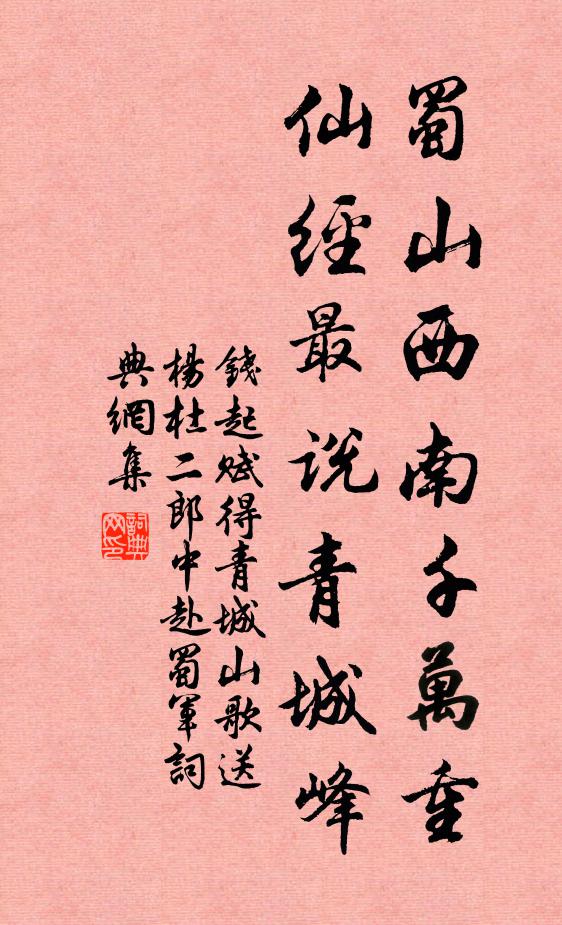 蜀山西南千萬重
仙經最說青城峰
錢起賦得青城山歌送
楊杜二郎中赴蜀軍詞
典網集
詞典
网印